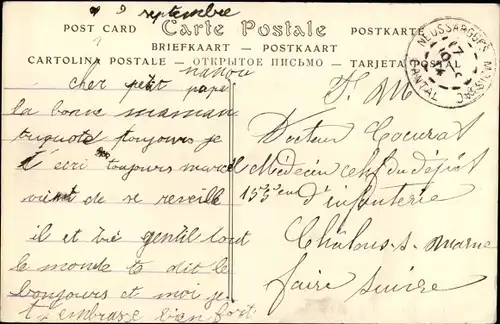 9 septembre
POST CARD
Carte Postale
POSTKARTE
BRIEFKAART — POSTKAART
CARTOLINA POSTALE — ОТКРЫТОЕ ПИСЬМО — TARJETA POSTAL
NEUSSARGUES MOISSAC
CANTAL
nanou
cher petit papa
la bonne maman
toujours je
t écri toujours marcel
vient de se reveille
il et tré gentil tout
le monde te dit le
bonjours et moi je
t embrasse bien fort
F. M
Docteur
Médecin chef du dépôt
d'infanterie
Châlons-s-Marne
faire suivre